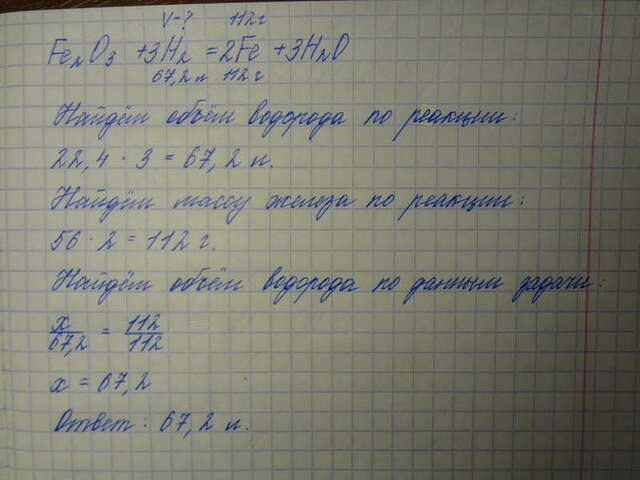 V-? 112г
Fe₂O₃ +3H₂ =2Fe +3H₂O
67,2 л 112 г
Найдём объём водорода по реакции:
22,4 · 3 = 67,2 л.
Найдём массу железа по реакции:
56 · 2 = 112 г.
Найдём объём водорода по данным задачи:
x/67,2 = 112/112
x = 67,2
Ответ: 67,2 л.